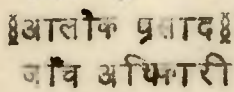 (आलोक प्रसाद)
जाँच अधिकारी